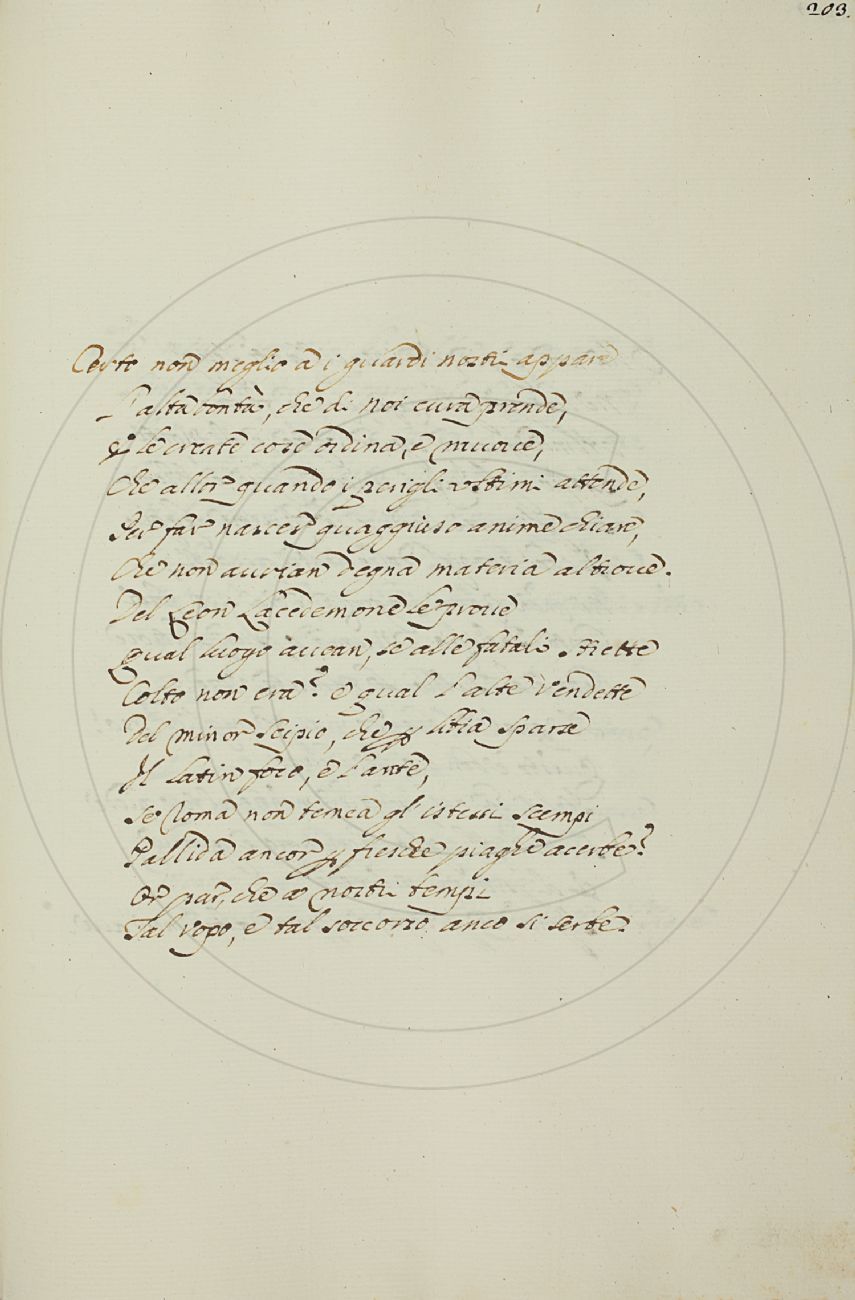 203.
Certo non meglio à i guardi nostri appare
L'alta bontà, che di noi cura prende,
E le create cose ordina, e muove,
Che allor quando i perigli ultimi attende,
Per far nascer quaggiuso anime chiare,
Che non avrian degna materia altrove.
Del Leon Lacedemone le prove
Qual luogo avean, se alle fatali strette
Colto non era? e qual l'alte vendette
Del minor Scipio, che p Libia sparse
Il Latin foco, e l'arte,
Se Roma non temea gl'istessi scempi
Pallida ancor p fresche piaghe acerbe?
Or par, che a' nostri tempi
Tal uopo, e tal soccorso anco si serbe.